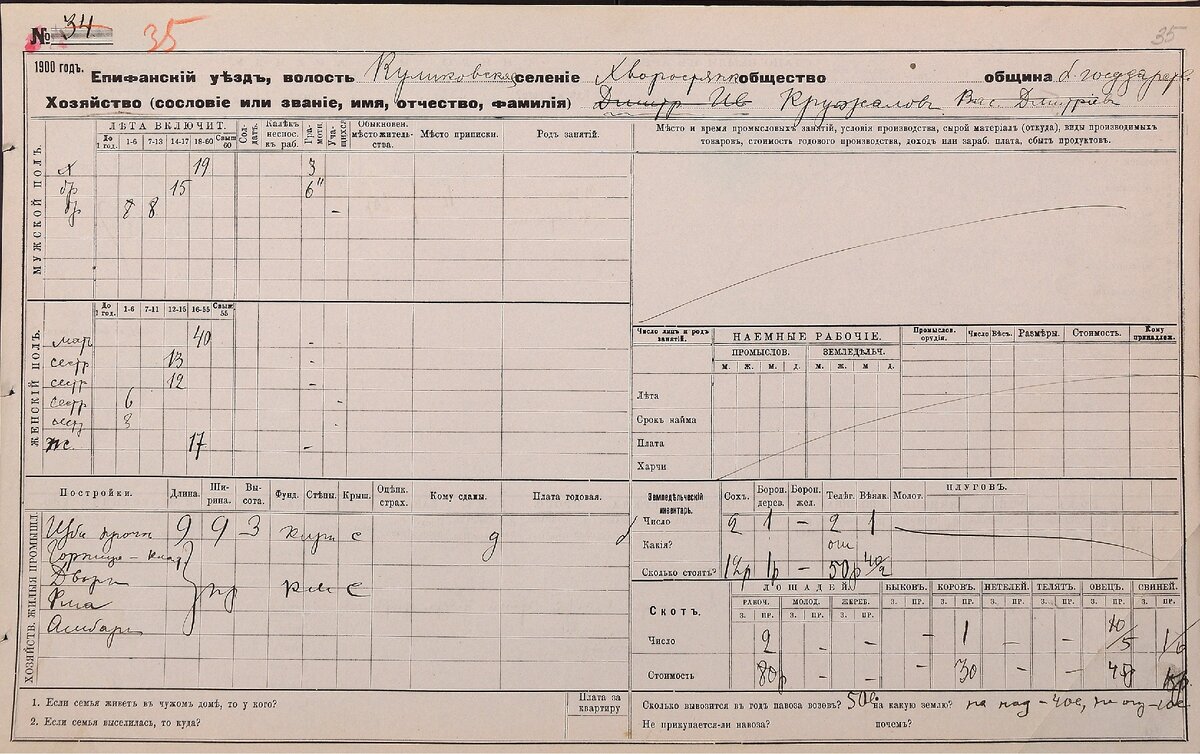 № 34 35 35
1900 годъ. Епифанскій уѣздъ, волость Куликовская селеніе Хворостянка общество община
Хозяйство (сословіе или званіе, имя, отчество, фамилія) Дмитр Ив Кружалов Вас. Дмитріев
МУЖСКОЙ ПОЛЪ.
ЛѢТА ВКЛЮЧИТ.
До 1 год. 1-6 7-13 14-17 18-60 Свыш 60
Сол-дать. Калѣк неспос. к раб. Грамоти. Уча-щихся
Обыкновен. мѣстожитель-ства. Мѣсто приписки. Родъ занятій.
19 3
бр 15 6"
бр 8 -
ЖЕНСКІЙ ПОЛЪ.
До 1 год. 1-6 7-11 12-15 16-55 Свыш 55
мат 40 -
сестр 13 -
сестр 12 -
сестр 6 -
сестр 3
жс. 17 -
Мѣсто и время промысловыхъ занятій, условія производства, сырой матеріалъ (откуда), виды производимыхъ
товаровъ, стоимость годового производства, доходъ или зараб. плата, сбытъ продуктовъ.
Число лицъ и родъ занятій. НАЕМНЫЕ РАБОЧІЕ. Промыслов. орудія. Число Вѣсъ. Размѣры. Стоимость. Кому принадлеж.
ПРОМЫСЛОВ. ЗЕМЛЕДѢЛЬЧ.
м. ж. м. д. м. ж. м д.
Лѣта
Срокъ найма
Плата
Харчи
ХОЗЯЙСТВ. ЖИЛЫЯ ПРОМЫШЛ.
Постройки. Длина. Ши-рина. Вы-сота. Фунд. Стѣны. Крыш. Оцѣнк. страх. Кому сданы. Плата годовая.
Изба 9 9 3 кирп с
Дворы пр кам с
Яма
Амбары
Земледѣльческій инвентарь. Сохъ. Борон. дерев. Борон. жел. Телѣг. Вѣялк. Молот. ПЛУГОВЪ.
Число 2 1 - 2 1
Какія?
Сколько стоятъ? 12р 1р - 50р
СКОТЪ. ЛОШАДЕЙ. БЫКОВЪ. КОРОВЪ. НЕТЕЛЕЙ. ТЕЛЯТЪ. ОВЕЦЪ. СВИНЕЙ.
РАБОЧ. МОЛОД. ЖЕРЕБ. З. ПР. З. ПР. З. ПР. З. ПР. З. ПР. З. ПР.
З. ПР. З. ПР. З. ПР.
Число 2 - - - 1 - - 10/5
Стоимость 80р - - - 30 - - 45р
1. Если семья живетъ въ чужомъ домѣ, то у кого?
2. Если семья выселилась, то куда?
Плата за квартиру
Сколько вывозится въ годъ навоза возовъ? 50в. на какую землю?
Не прикупается-ли навоза? почемъ?